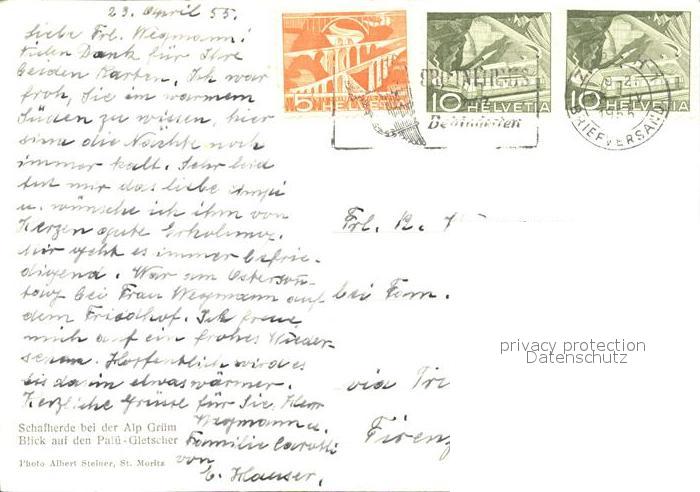 23. April 55.
Liebe Frl. Wegmann!
Vielen Dank für Ihre
beiden Karten. Ich war
froh, Sie im warmem
Süden zu wissen, hier
sind die Nächte noch
immer kalt. Sehr leid
tut mir das liebe
u. wünsche ich ihm von
Herzen gute Erholung.
Mir geht es immer befrie-
digend. War am Osterson-
tag bei Frau Wegmann auf
dem Friedhof. Ich freue
mich auf ein frohes Wieder-
sehen. Hoffentlich wird es
bis dahin etwas wärmer.
Herzliche Grüsse für Sie, Herr
Wegmann u.
Familie
von
E. Hauser.
Schafherde bei der Alp Grüm
Blick auf den Palü-Gletscher
Photo Albert Steiner, St. Moritz
5 HELVETIA
10 HELVETIA
10 HELVETIA
Behinderten
BRIEFVERSAND
Frl.
bei Fam.
via
Firenz
privacy protection
Datenschutz